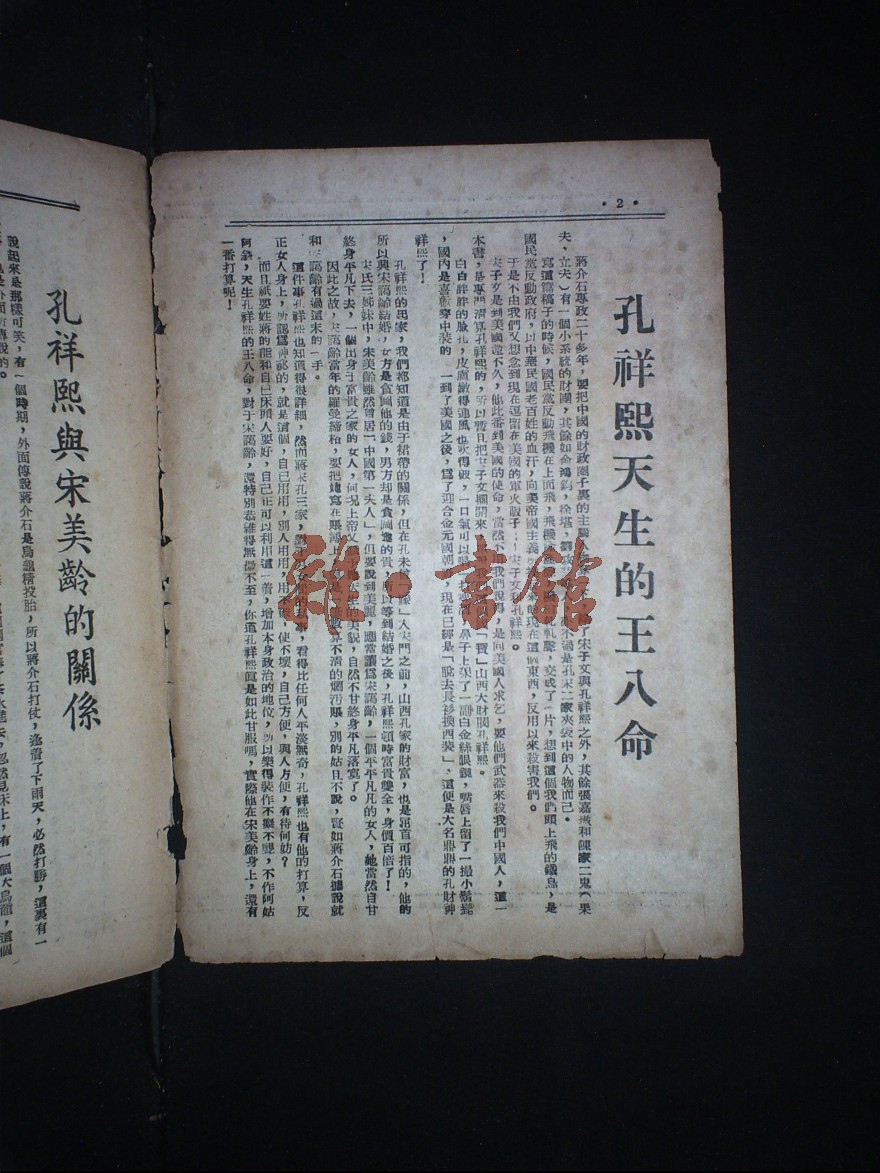 •2•
孔祥熙天生的王八命
蔣介石專政二十多年，要把中國的財政圈子裏的主腦
了宋子文與孔祥熙之外，其餘張嘉璈和陳家二鬼（果
夫、立夫）有一個小系統的財團，其餘如俞鴻鈞，徐堪，劉攻芸
不過是孔宋二家夾袋中的人物而已。
寫這篇稿子的時候，國民黨反動派飛機在上面飛，飛機
軋聲，交成了一片，想到這個我們頭上飛的鐵鳥，是
國民黨反動政府，以中華民國老百姓的血汗，向美帝國主義
的現在這個東西，反用以來殺害我們。
于是不由我們又想念到現在逗留在美國的軍火販子
宋子文和孔祥熙。
宋子文是到美國還不久，他此番到美國的使命，當然不用我們說得，是向美國人求乞，要他們武器來殺我們中國人，這一
本書，是專門清算孔祥熙的，所以暫且把宋子文擱開來
「寶」山西大財閥孔祥熙。
白白胖胖的臉孔，皮膚嫩得迎風也吹得破，一口氣可以
鼻子上架了一副白金絲眼鏡，嘴唇上留了一撮小鬍髭
，國內是喜歡穿中裝的，一到了美國之後，爲了迎合金元國朝
，現在已經是「脫去長衫換西裝」，這便是大名鼎鼎的孔財神
祥熙了！
孔祥熙的思家，我們都知道是由于裙帶的關係，但在孔未
」入宋門之前，山西孔家的財富，也是屈首可指的，他的
所以與宋藹齡結婚，女方是貪圖他的錢，男方却是貪圖她的貴，所以等到結婚之後，孔祥熙頓時富貴雙全，身價百倍了！
宋氏三姊妹中，宋美齡雖然曾居「中國第一夫人」，但要說到美麗，應當讓爲宋藹齡，一個平平凡凡的女人，她當然自甘
終身平凡下去，一個出身于富貴之家的女人，何况上帝又
生的美貌，自然不甘終身平凡落寞了。
因此之故，宋藹齡當年的羅曼締柏，要把她寫在賬簿上
算不清的爛污賬，別的姑且不說，譬如蔣介石據說就
和宋藹齡有過這末的一手。
這件事孔祥熙也知道得很詳細，然而蔣宋孔三家，
事，看得比任何人平淡無奇，孔祥熙也有他的打算，反
正女人身上，所認爲神祕的，就是這個，自己用用，別人用用，用不
使不壞，自己方便，與人方便，有待何妨？
而且祇要姓蔣的能和自己床頭人要好，自己正可以利用這一着，增加本身政治的地位，所以樂得裝作不癡不聾，不作阿姑
阿翁，天生孔祥熙的王八命，對于宋藹齡，還特別恭維得無微不至，你道孔祥熙眞是如此甘服嗎，實際他在宋美齡身上，還有
一番打算呢！
孔祥熙與宋美齡的關係
說起來是那樣可笑，有一個時期，外面傳說蔣介石是烏龜精投胎，所以蔣介石打仗，逢着了下雨天，必然打勝，這裏有一
雜·書館